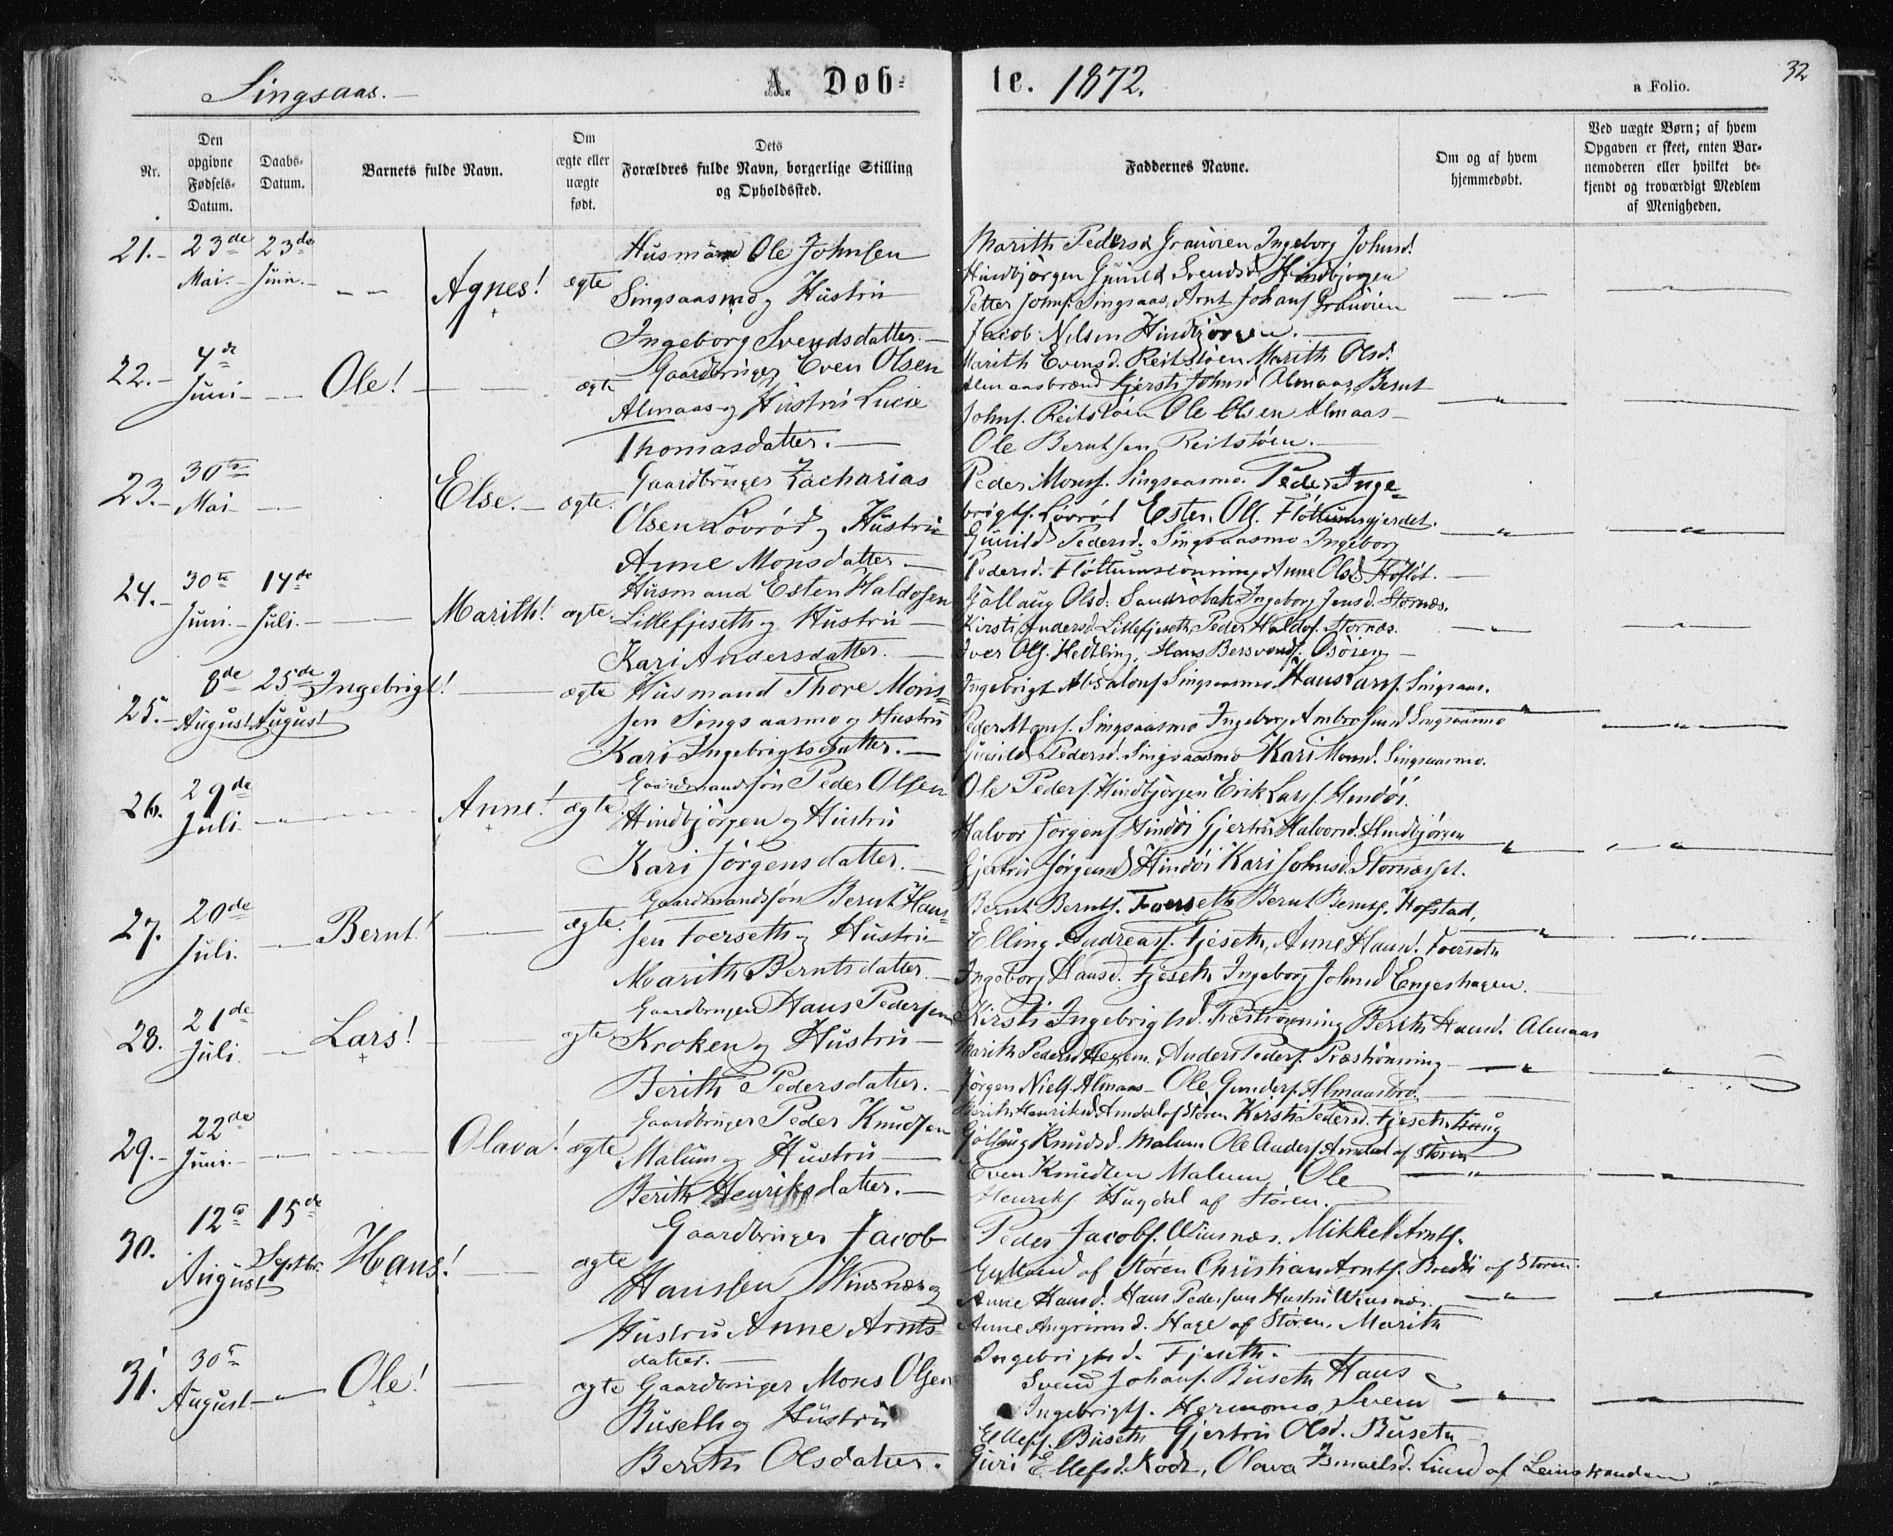 Singsaas.
A. Døb-
te. 1872.
a Folio.
32
Nr.
Den opgivne Fødsels-Datum.
Daabs-Datum.
Barnets fulde Navn.
Om ægte eller uægte født.
Dets Forældres fulde Navn, borgerlige Stilling og Opholdssted.
Faddernes Navne.
Om og af hvem hjemmedøbt.
Ved uægte Børn; af hvem Opgaven er skeet, enten Barnemoderen eller hvilket bekjendt og troværdigt Medlem af Menigheden.
21. 23de Mai. 23de Juni. Agnes! ægte
Husmand Ole Johnsen
Singsaasmo og Hustru
Ingeborg Svendsdatter.
Marith Pedersd Granøien Ingeborg Johnsd.
Hindbjørgen Gunild Svendsd. Hindbjørgen
Petter Johns. Singsaas, Arnt Johans Granøien
Jacob Nilsen Hindbjørgen.
22. 4de Juni Ole! ægte
Gaardbruger Even Olsen
Almaas og Hustru Lucie
Thomasdatter.
Marith Evensd. Reitstøen Marith Olsd.
Almaasbrænd Kjersti Johnsd Almaas, Bernt
Johns. Reitstøen Ole Olsen Almaas
Ole Berntsen Reitstøen.
23. 30te Mai Else. ægte.
Gaardbruger Zacharias
Olsen Løvrød og Hustru
Anne Monsdatter.
Peder Mons. Singsaasmo. Peder Inge-
brigts. Løvrød Esten Ols. Fløttumsgjerdet.
Gunild Pedersd. Singsaasmo Ingeborg
Pedersd. Fløttumsrønning Anne Olsd.
24. 30te Juni. 14de Juli. Marith! ægte.
Husmand Esten Haldosen
Lillefjeseth og Hustru
Kari Andersdatter.
Gollaug Olsd. Sandrobak Ingeborg Jensd. Stornæs.
Kirsti Andersd. Lillefjeseth, Peder Haldos. Stornæs.
Iver Ols. Hedling, Hans Bersvends. Osøren
25. 8de August 25de August Ingebrigt! ægte
Husmand Thore Mons-
sen Singsaasmo og Hustru
Kari Ingebrigtsdatter.
Ingebrigt Absalons Singsaasmo Hans Lars. Singsaas.
Peder Mons. Singsaasmo Ingeborg Ambrosensd Singsaasmo
Gunild Pedersd. Singsaasmo Kari Monsd. Singsaasmo.
26. 29de Juli. Anne! ægte.
Gaardmandsøn Peder Olsen
Hindbjørgen og Hustru
Kari Jørgensdatter.
Ole Peders. Hindbjørgen Erik Lars. Hindøi.
Halvor Jørgens Hindøi Gjertru Halvorsd. Hindbjørgen
Gjertru Jørgensd Hindøi Kari Johnsd. Stornæsset.
27. 20de Juli. Bernt! ægte.
Gaardmandsøn Bernt Han-
sen Foerseth og Hustru
Marith Berntsdatter.
Bernt Bernts. Foerseth Bernt Bernts. Hofstad,
Elling Andreas. Fjeseth, Anne Hansd. Foerseth
Ingeborg Hansd. Fjeseth Ingeborg Johnsd Engeshagen.
28. 21de Juli. Lars! ægte
Gaardbruger Hans Pedersen
Kroken og Hustru
Berith Pedersdatter.
Kirsti Ingebrigtsd. Præstrønning Berith Hansd. Almaas
Marith Pedersd Hegem, Anders Peders. Præstrønning
Jørgen Niels. Almaas Ole Gunders. Almaasbro.
29. 22de Juni. Olava! ægte
Gaardbruger Peder Knudsen
Malum og Hustru
Berith Henriksdatter.
Berith Henriksd. Amdal af Støren Kirsti Pedersd. Fjeseth
Gollaug Knudsd. Malum Ole Anders. Amdal af Støren
Even Knudsen Malum Ole
Henriks Hugdal af Støren.
30. 12te August 15de Septbr. Hans! ægte
Gaardbruger Jacob
Hanssen Winsnæs og
Hustru Anne Arnts-
datter.
Peder Jacobs. Winsnæs. Mikkel Arnts.
af Støren Christian Arnts. af Støren.
Anne Hansd. Hans Pedersens Hustru Winsnæs.
Anne Angrimsd. Hage af Støren, Marith
Ingebrigtsd. Fjeseth.
31. 30te August Ole! ægte
Gaardbruger Mons Olsen
Buseth og Hustru
Berith Olsdatter.
Svend Johans. Buseth Hans
Ingebrigts. Hermomo, Svend
Ellefs. Buseth Gjertru Olsd. Buseth
Guri Ellefsd. Olava Ismaelsd. Lund af Leinstranden